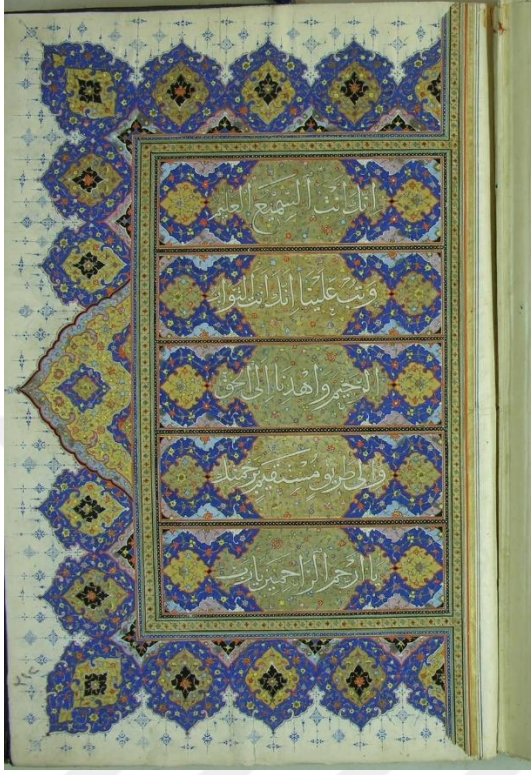 انك انت السميع العليم
وتب علينا انك انت التواب
الرحيم واهدنا الى الحق
والى طريق مستقيم برحمتك
يا ارحم الراحمين يا رب